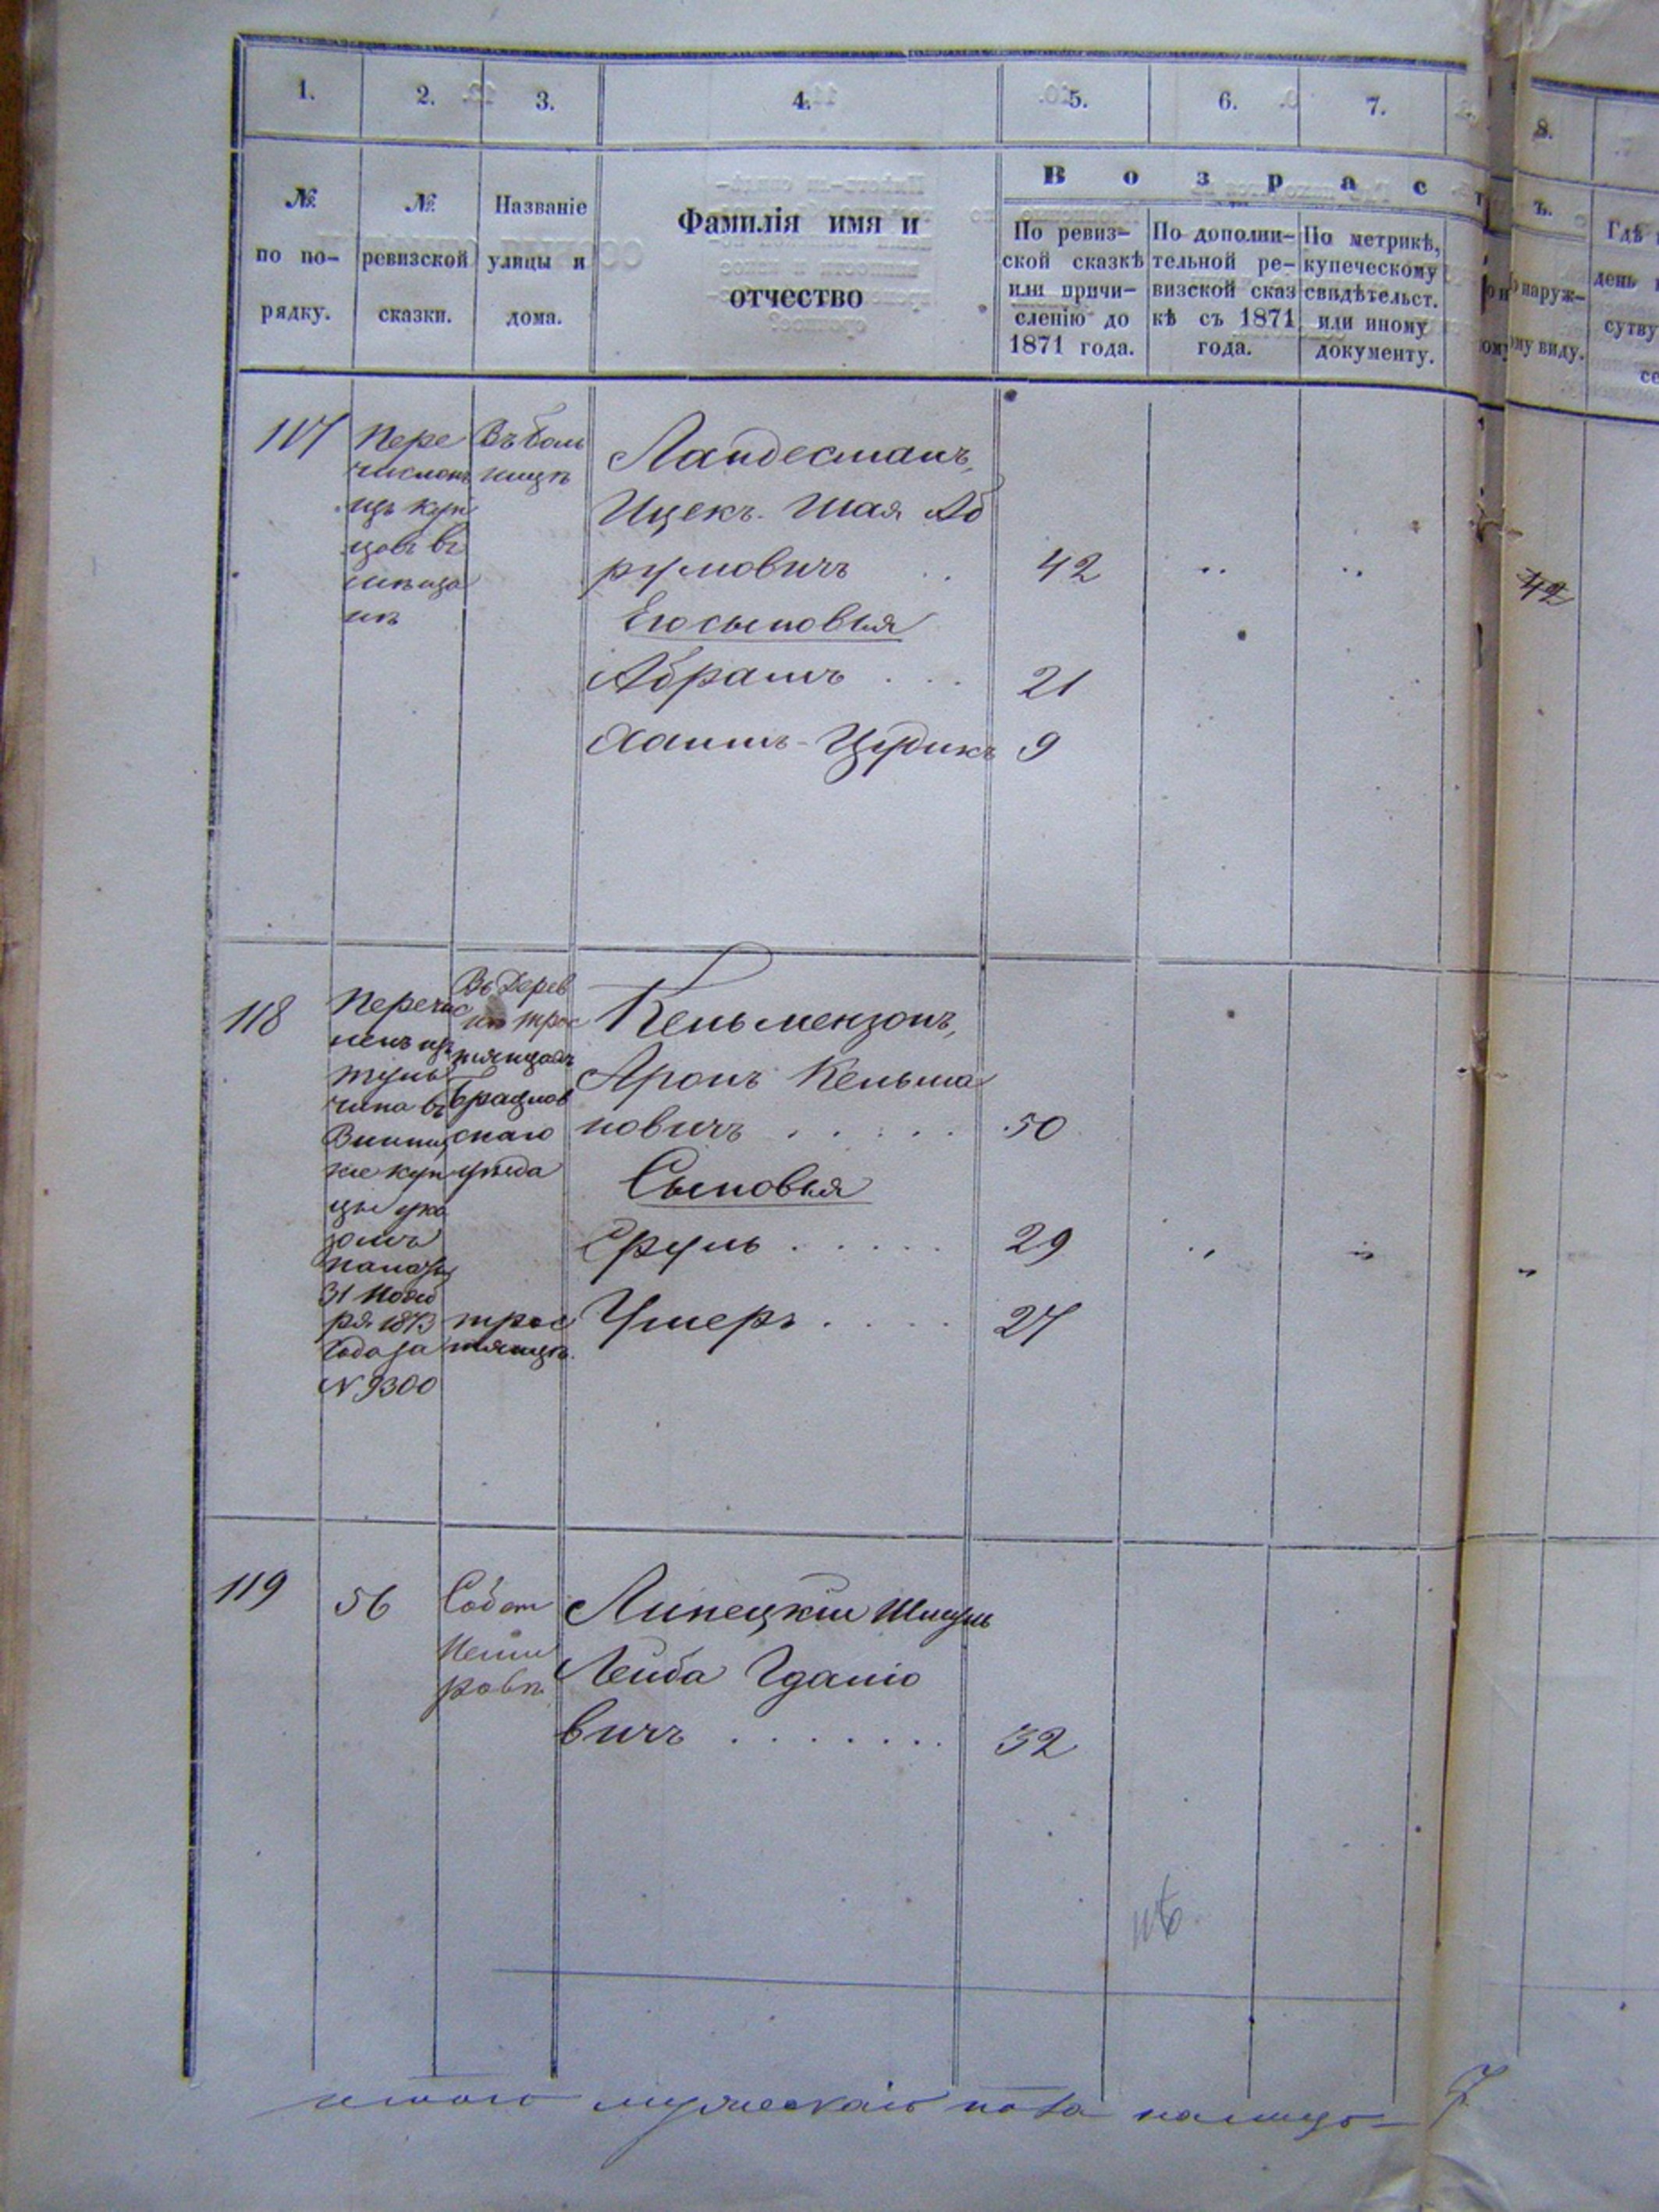 1. 2. 3. 4. 5. 6. 7. 8.
В о з р а с т ъ.
№ по по-рядку.
№ ревизской сказки.
Названіе улицы и дома.
Фамилія имя и отчество
По ревиз-
ской сказкѣ
или причи-
сленію до
1871 года.
По дополни-
тельной ре-
визской сказ
кѣ съ 1871
года.
По метрикѣ,
купеческому
свидѣтельст.
или иному
документу.
наруж-
виду.
Гдѣ
день
сутву
117
Пере
численъ
изъ куп
цовъ въ
мѣща
не
Въ боль
ницѣ
Ландесманъ,
Ицекъ-Шая Аб
румовичъ 42
42
Его сыновья
Абрамъ 21
Хаимъ-Цудикъ 9
118
Перечис
ленъ изъ
Туль
чина въ
Винниц
кіе куп
цы ука
зомъ
палаты
31 Нояб
ря 1873
года за
N 9300
Въ Дерев
нѣ Трос
тянцахъ
Брацлав
скаго
уѣзда
Трос
тянцѣ.
Кельмензонъ,
Аронъ Кельма
новичъ 50
Сыновья
Сруль 29
Ушеръ 27
119
56
Собст
Неми
ровѣ
Липецкій Шмуль
Лейба Гдаліо
вичъ 32
итого мужескаго пола налицо 7